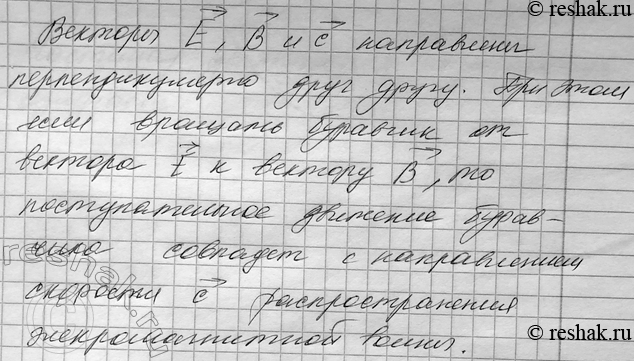 © reshak.ru
Векторы E⃗, B⃗ и c⃗ направлены
перпендикулярно друг другу. При этом
если вращать буравчик от
вектора E⃗ к вектору B⃗, то
поступательное движение бурав-
чика совпадет с направлением
скорости c⃗ распространения
электромагнитной волны.
reshak.ru